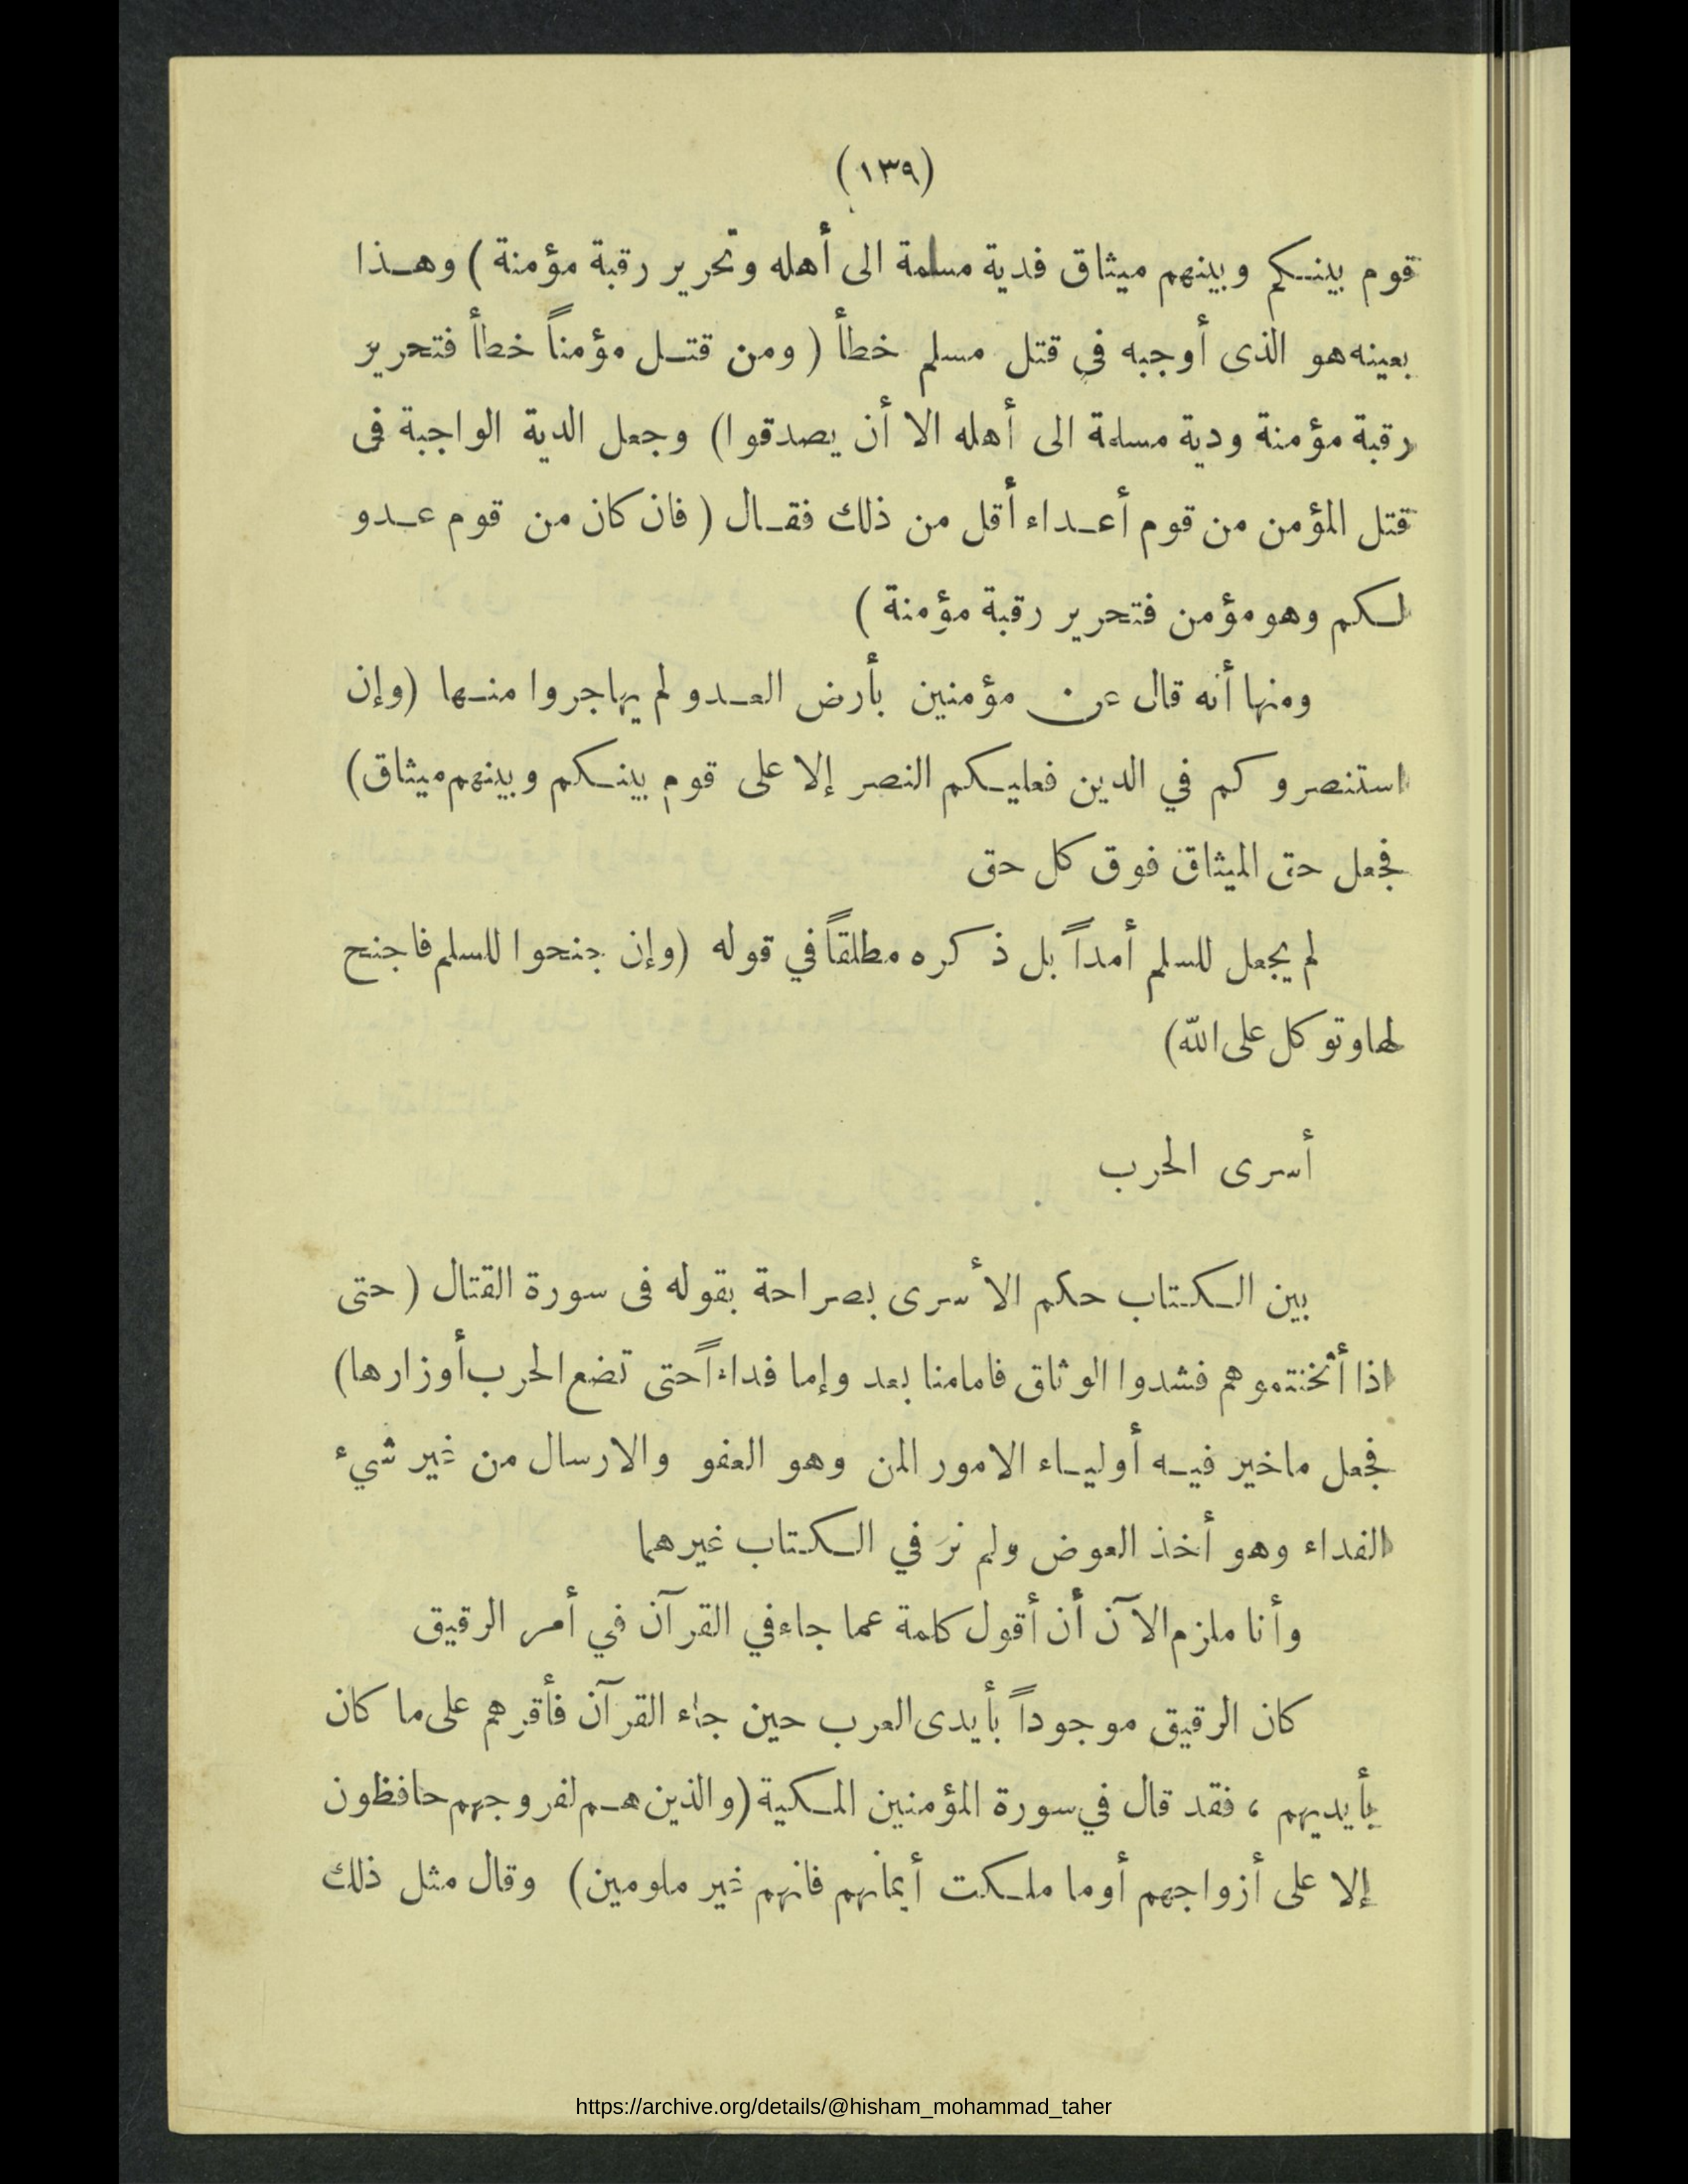 (١٣٩)
قوم بينكم وبينهم ميثاق فدية مسلمة الى أهله وتحرير رقبة مؤمنة ) وهذا
بعينه هو الذى أوجبه في قتل مسلم خطأ ( ومن قتل مؤمناً خطأ فتحرير
رقبة مؤمنة ودية مسلمة الى أهله الا أن يصدقوا) وجعل الدية الواجبة فى
قتل المؤمن من قوم أعداء أقل من ذلك فقال ( فان كان من قوم عدو
لكم وهو مؤمن فتحرير رقبة مؤمنة )
ومنها أنه قال عن مؤمنين بأرض العدو لم يهاجروا منها (وإن
استنصروكم في الدين فعليكم النصر إلا على قوم بينكم وبينهم ميثاق)
فجعل حق الميثاق فوق كل حق
لم يجعل للسلم أمداً بل ذكره مطلقاً في قوله (وإن جنحوا للسلم فاجنح
لها وتوكل على الله)
أسرى الحرب
بين الكتاب حكم الأسرى بصراحة بقوله فى سورة القتال ( حتى
اذا أثخنتموهم فشدوا الوثاق فامامنا بعد وإما فداءاً حتى تضع الحرب أوزارها)
فجعل ماخير فيه أولياء الامور المن وهو العفو والارسال من غير شيء
الفداء وهو أخذ العوض ولم نرَ في الكتاب غيرهما
وأنا ملزم الآن أن أقول كلمة عما جاء في القرآن في أمر الرقيق
كان الرقيق موجوداً بأيدى العرب حين جاء القرآن فأقرهم على ما كان
بأيديهم ، فقد قال في سورة المؤمنين المكية (والذين هم لفروجهم حافظون
إلا على أزواجهم أوما ملكت أيمانهم فانهم غير ملومين) وقال مثل ذلك
https://archive.org/details/@hisham_mohammad_taher